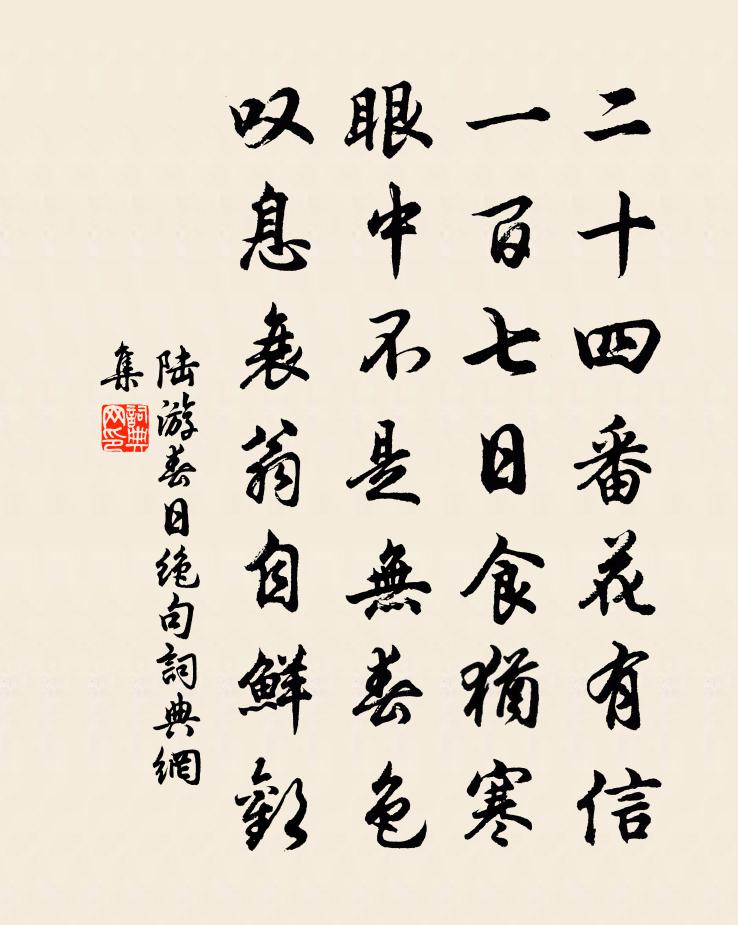 二十四番花有信
一百七日食猶寒
眼中不是無春色
叹息衰翁自鮮歡
陆游春日绝句詞典網
集
詞典
网印